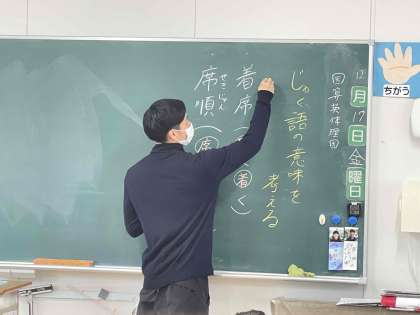 ちがう
12月17日金曜日
国算英体理
じゅく語の意味を
考える
着席(
着く
せきじゅん
席順(席